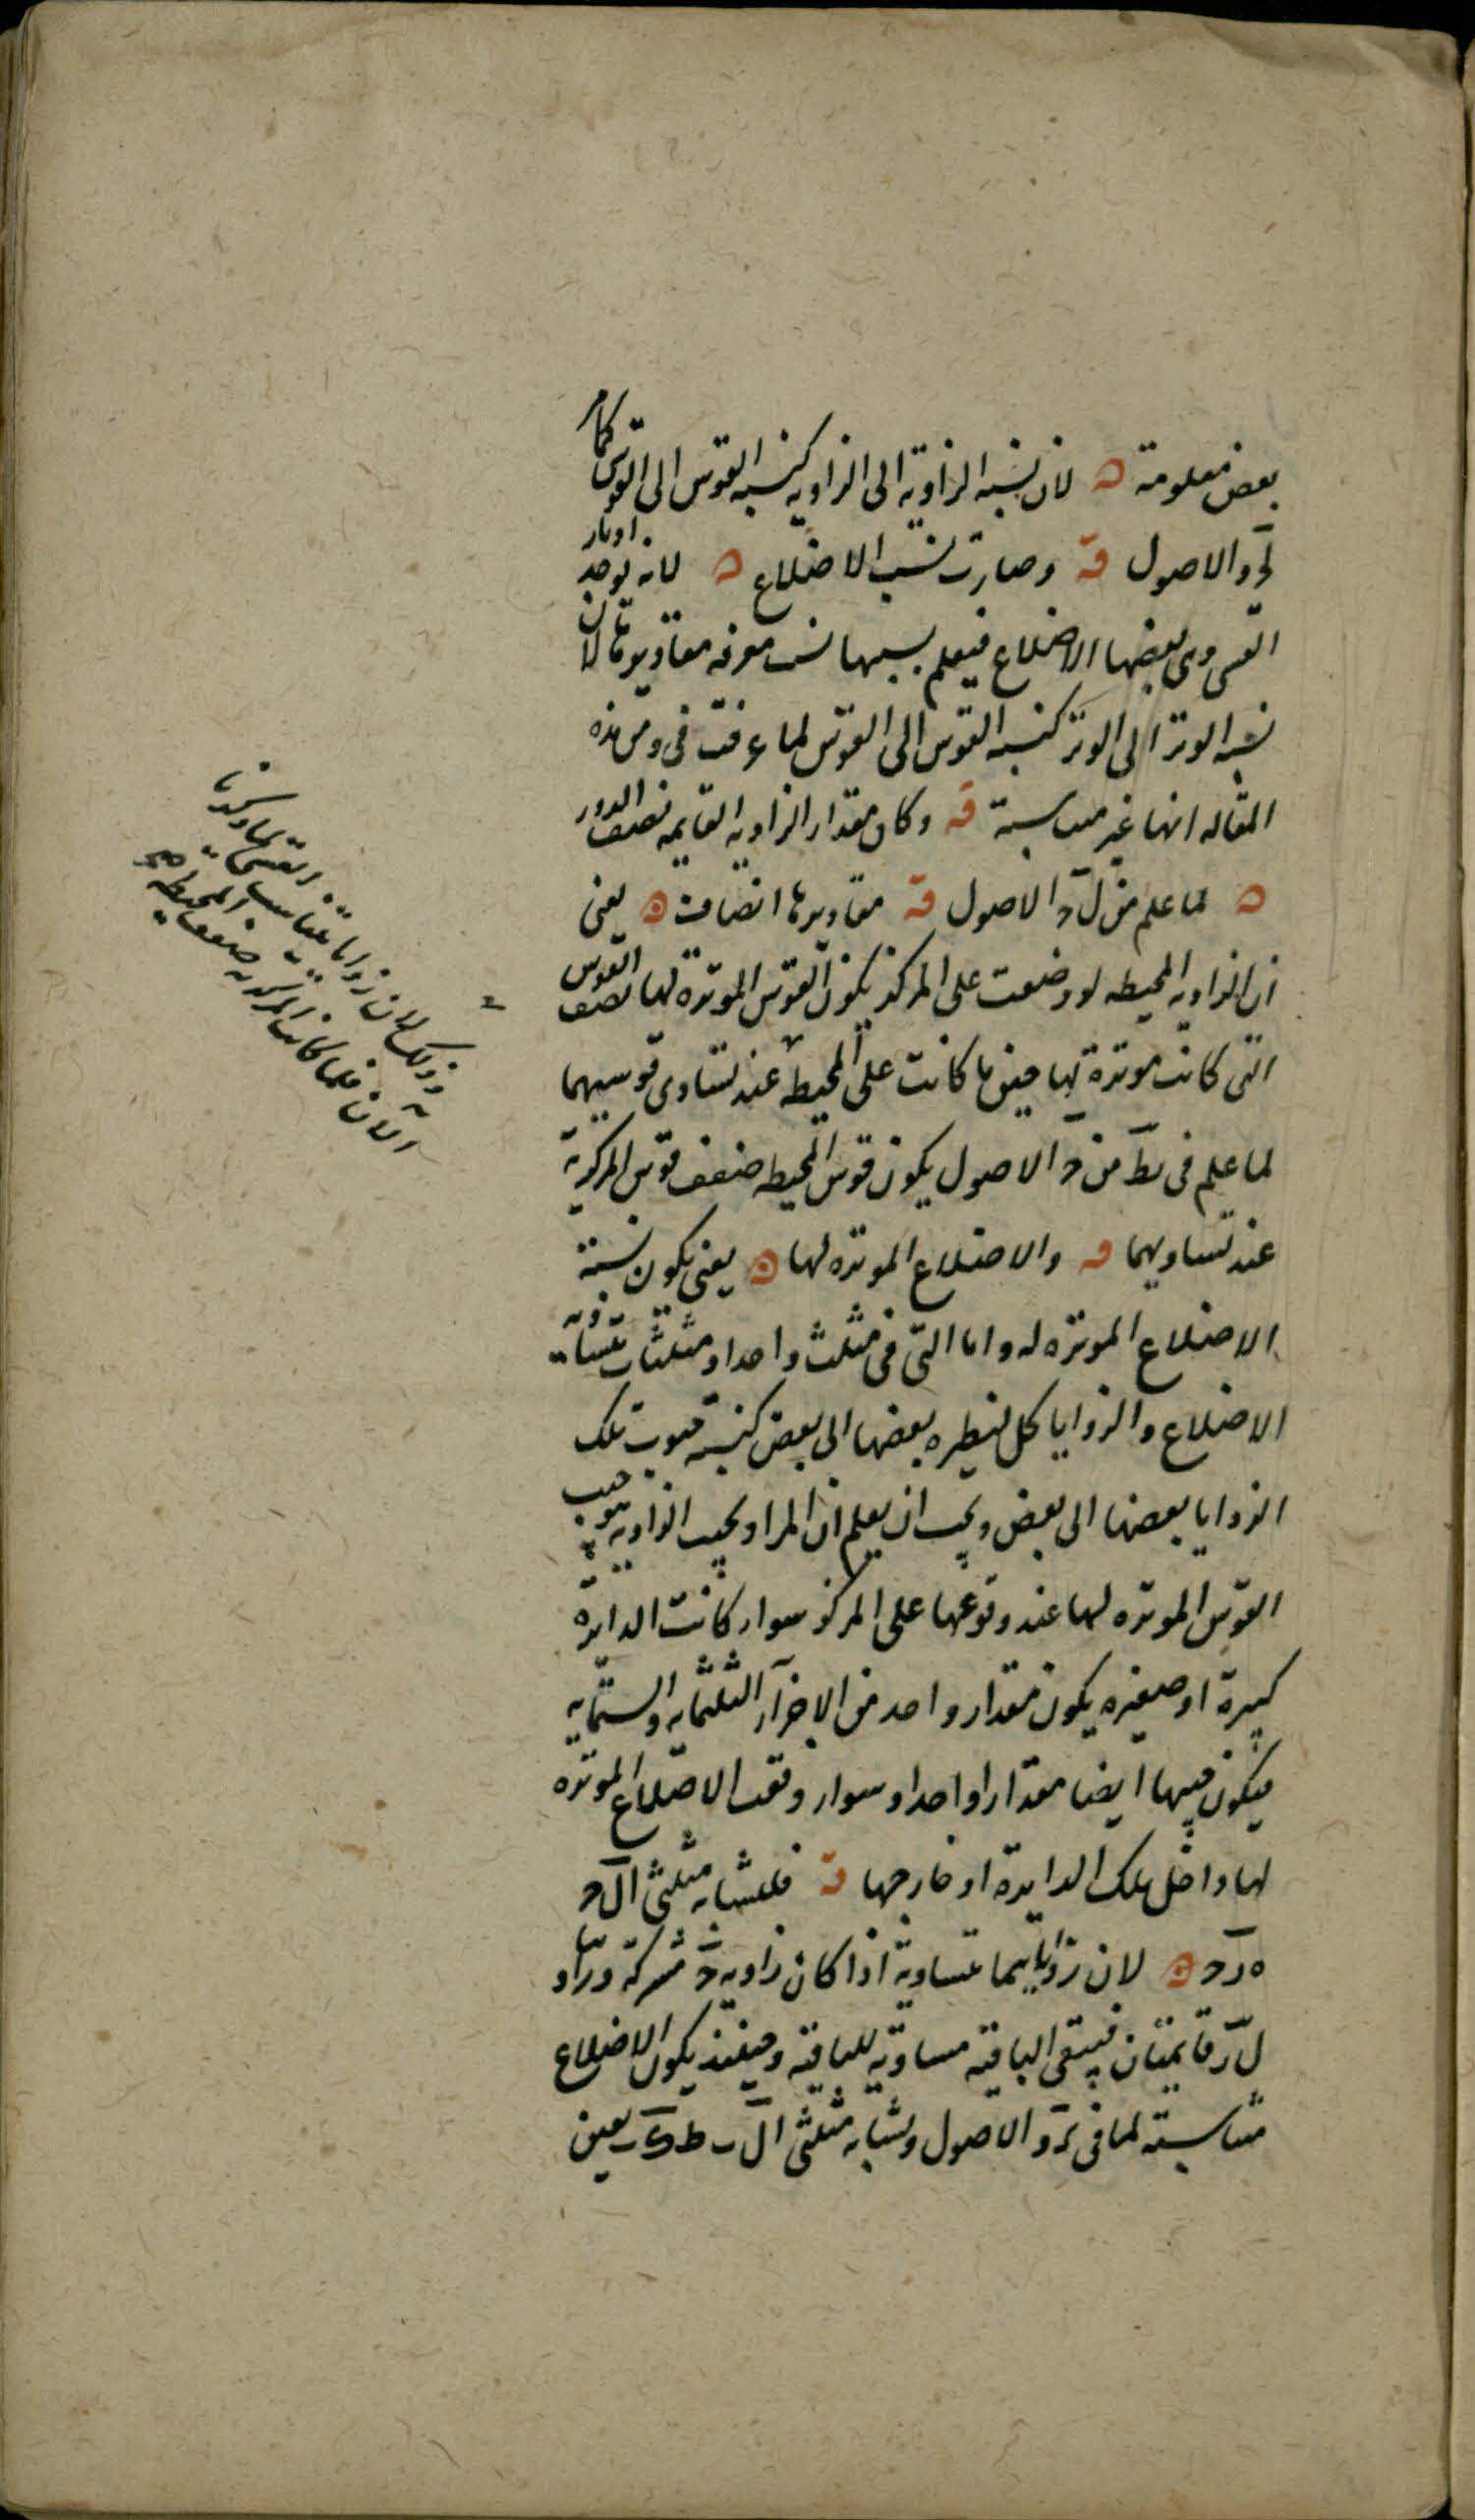 بعض معلومة ه لان نسبه الزاوية الى الزاويه كنسبه القوس الى القوس كما مر
لج و الاصول قه وصارت نسب الاضلاع ه لانه يوجد اوتار
القسى وهى بعضها الاضلاع فيعلم بسببها نسب معرفه مقاديرها لان
نسبه الوتر الى الوتر كنسبه القوس الى القوس لما عرفت فى و من هذه
المقاله انها غير متناسبة قه وكان مقدار الزاويه القايمه نصف الدور
ه لما علم من ل ج الاصول قه مقاديرها انصافه ه يعنى
ان الزاويه المحيطه لو وضعت على المركز يكون القوس الموترة لها نصف القوس
التى كانت موترة لها حين ما كانت على المحيطه عند تساوى قوسيهما
لما علم فى يط من ج الاصول يكون قوس المحيطه ضعف قوس المركزية
عند تساويهما قه والاضلاع الموتره لها ه يعنى يكون نسبة
الاضلاع الموتره له واما التى فى مثلث واحد او مثلثات متساوية
الاضلاع والزوايا كل لنظيره بعضها الى بعض كنسبة جيوب تلك
الزوايا بعضها الى بعض ويجب ان يعلم ان المراد بجيب الزاويه هو جيب
القوس الموتره لها عند وقوعها على المركز سواء كانت الدايرة
كبيرة او صغيره يكون مقدار واحد من الاجزآء الثلثمايه والستمايه
فيكون جيبها ايضا مقدارا واحدا وسواء وقعت الاضلاع الموتره
لها داخل تلك الدايرة او خارجها قه فلتشابه مثلثى ال ج
ه ر ج ه لان زواياهما متساوية اذا كان زاويه ج مشتركة وزاويتا
ل ر قايمتان فيبقى الباقيه مساوية للباقية وحينئذ يكون الاضلاع
متناسبة لما فى د و الاصول وتشابه مثلثى ال ب ط ك ب يعين
وذلك لان زوايا تتناسب القسى لما ذكرنا
الآن فلما كانت المركزيه ضعف المحيطه